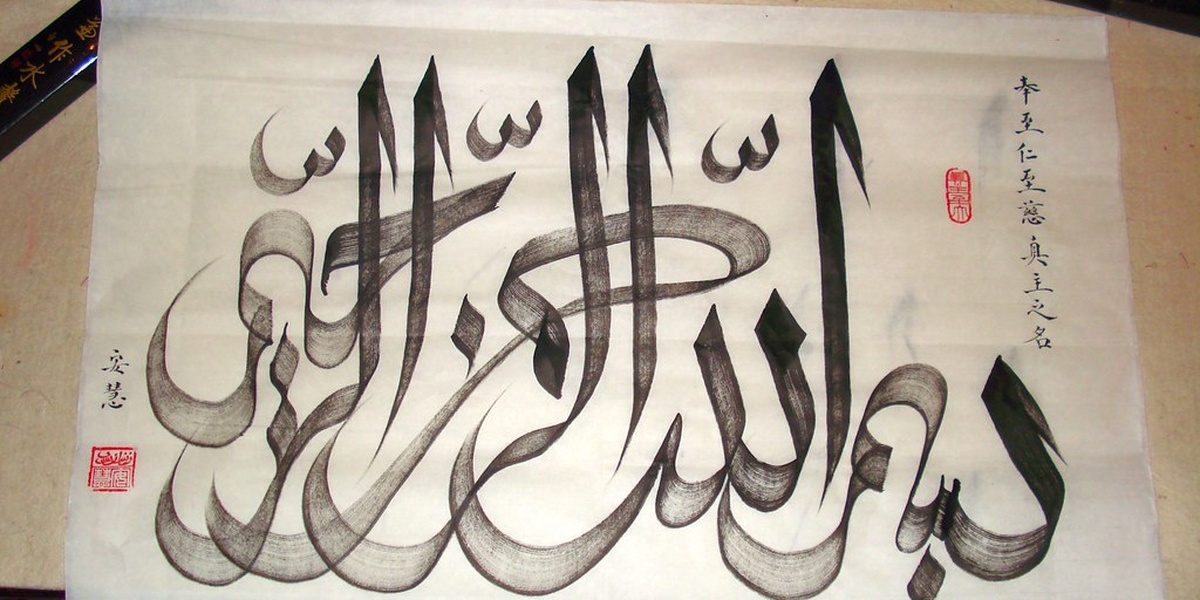 بسم الله الرحمن الرحيم
奉至仁至慈真主之名
安慧